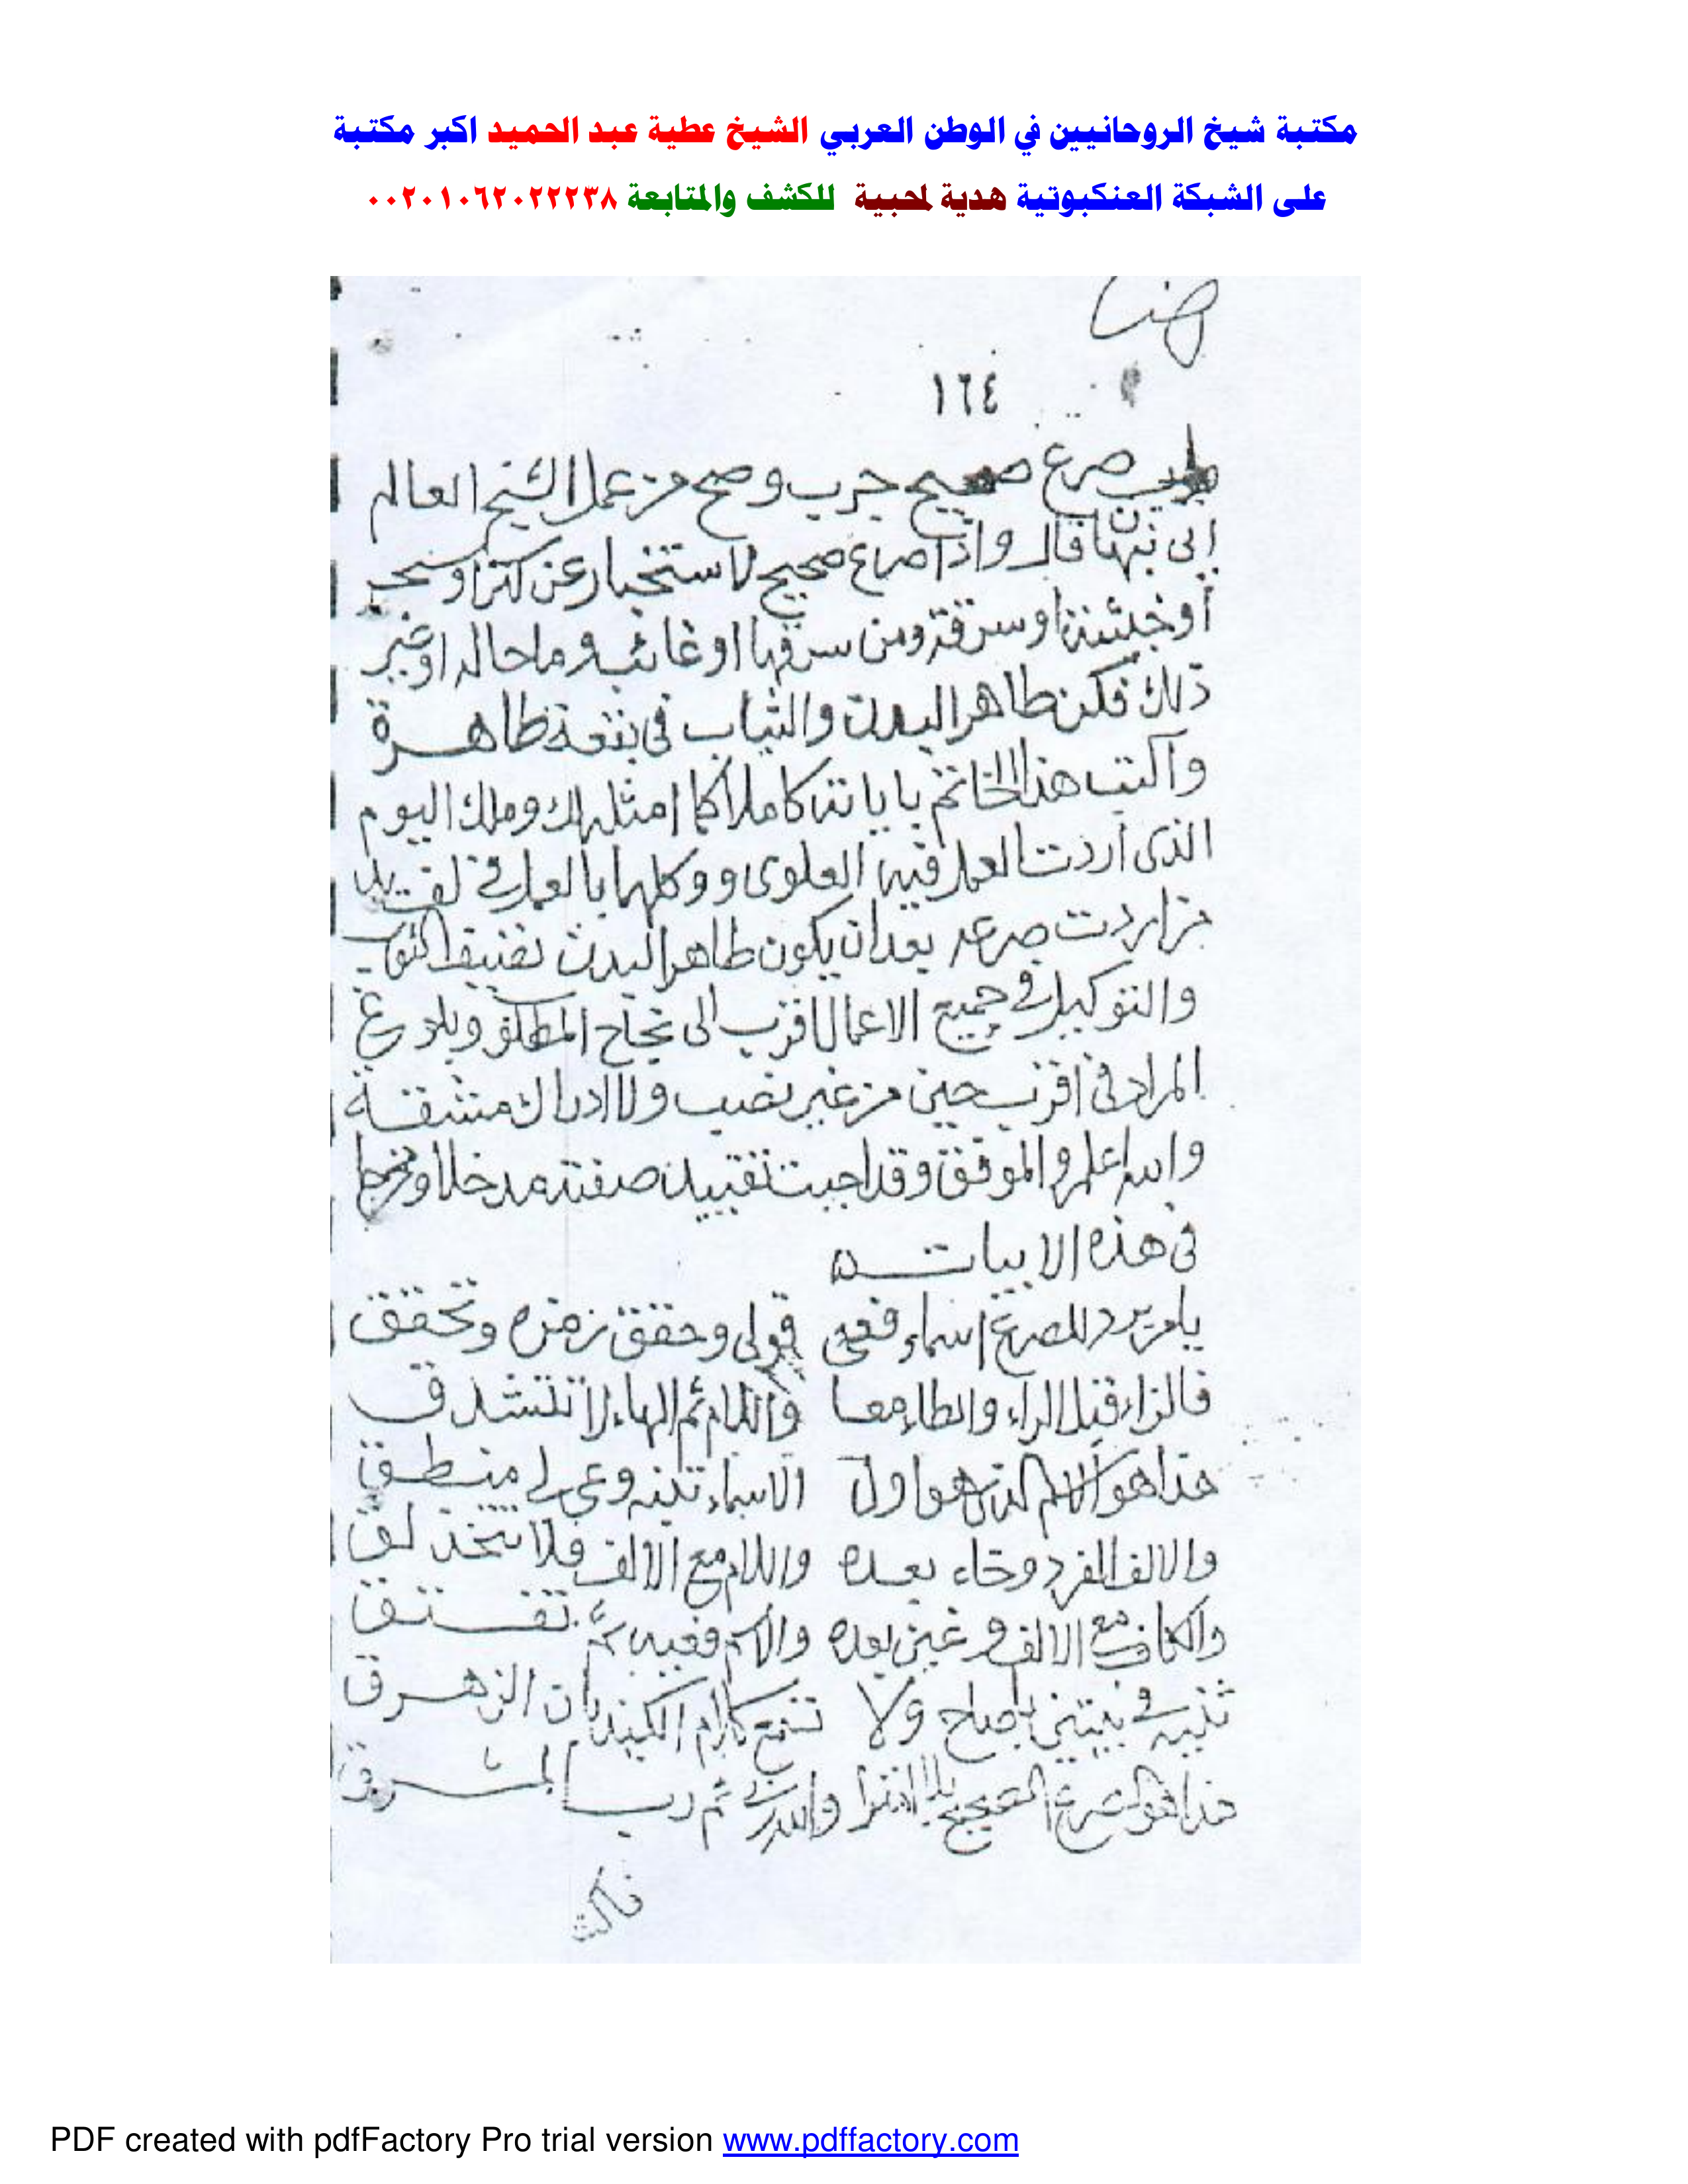 مكتبة شيخ الروحانيين في الوطن العربي الشيخ عطية عبد الحميد اكبر مكتبة
على الشبكة العنكبوتية هدية لمحبية للكشف والمتابعة ٠٠٢٠١٠٦٢٠٢٢٢٣٨
١٦٤
صرع صحيح جرب وصح من عمل الشيخ العالم
قال واذا صراع صحيح لاستخبار عن كنز او سحر
أو خبيئة او سرقة ومن سرقها او غائب وما حاله او غير
ذلك فكن طاهر البدن والثياب فى بقعة طاهرة
واكتب هذا الخاتم باياته كاملا كما امثله لك وملك اليوم
الذى اردت العمل فيه العلوى ووكلهما بالعمل فى
من اردت صرعه بعد ان يكون طاهر البدن نضيف الثوب
والتوكيل فى جميع الاعمال اقرب الى نجاح المطلوب وبلوغ
المراد فى اقرب حين من غير نصب ولا ادراك مشقة
والله اعلم والموفق وقد احببت تقييد صفته مدخلا ومخرجا
فى هذه الابيات
يا من يريد الصرع اسماء فعى قولى وحقق رمزه وتحقق
فالزاء قبل الراء والطاء معا واللام ثم الهاء لا تتشدق
هذا هو الاسم الذى هو اول الاسماء وعى لى منطق
والالف المفرد وخاء بعده واللام مع الالف فلا تتخذ
والكاف مع الالف وغين بعده والاسم
فى بيتين ولا كلام
هذا هو الصرع الصحيح بلا افترا والله ربى ثم رب المشرق
PDF created with pdfFactory Pro trial version www.pdffactory.com